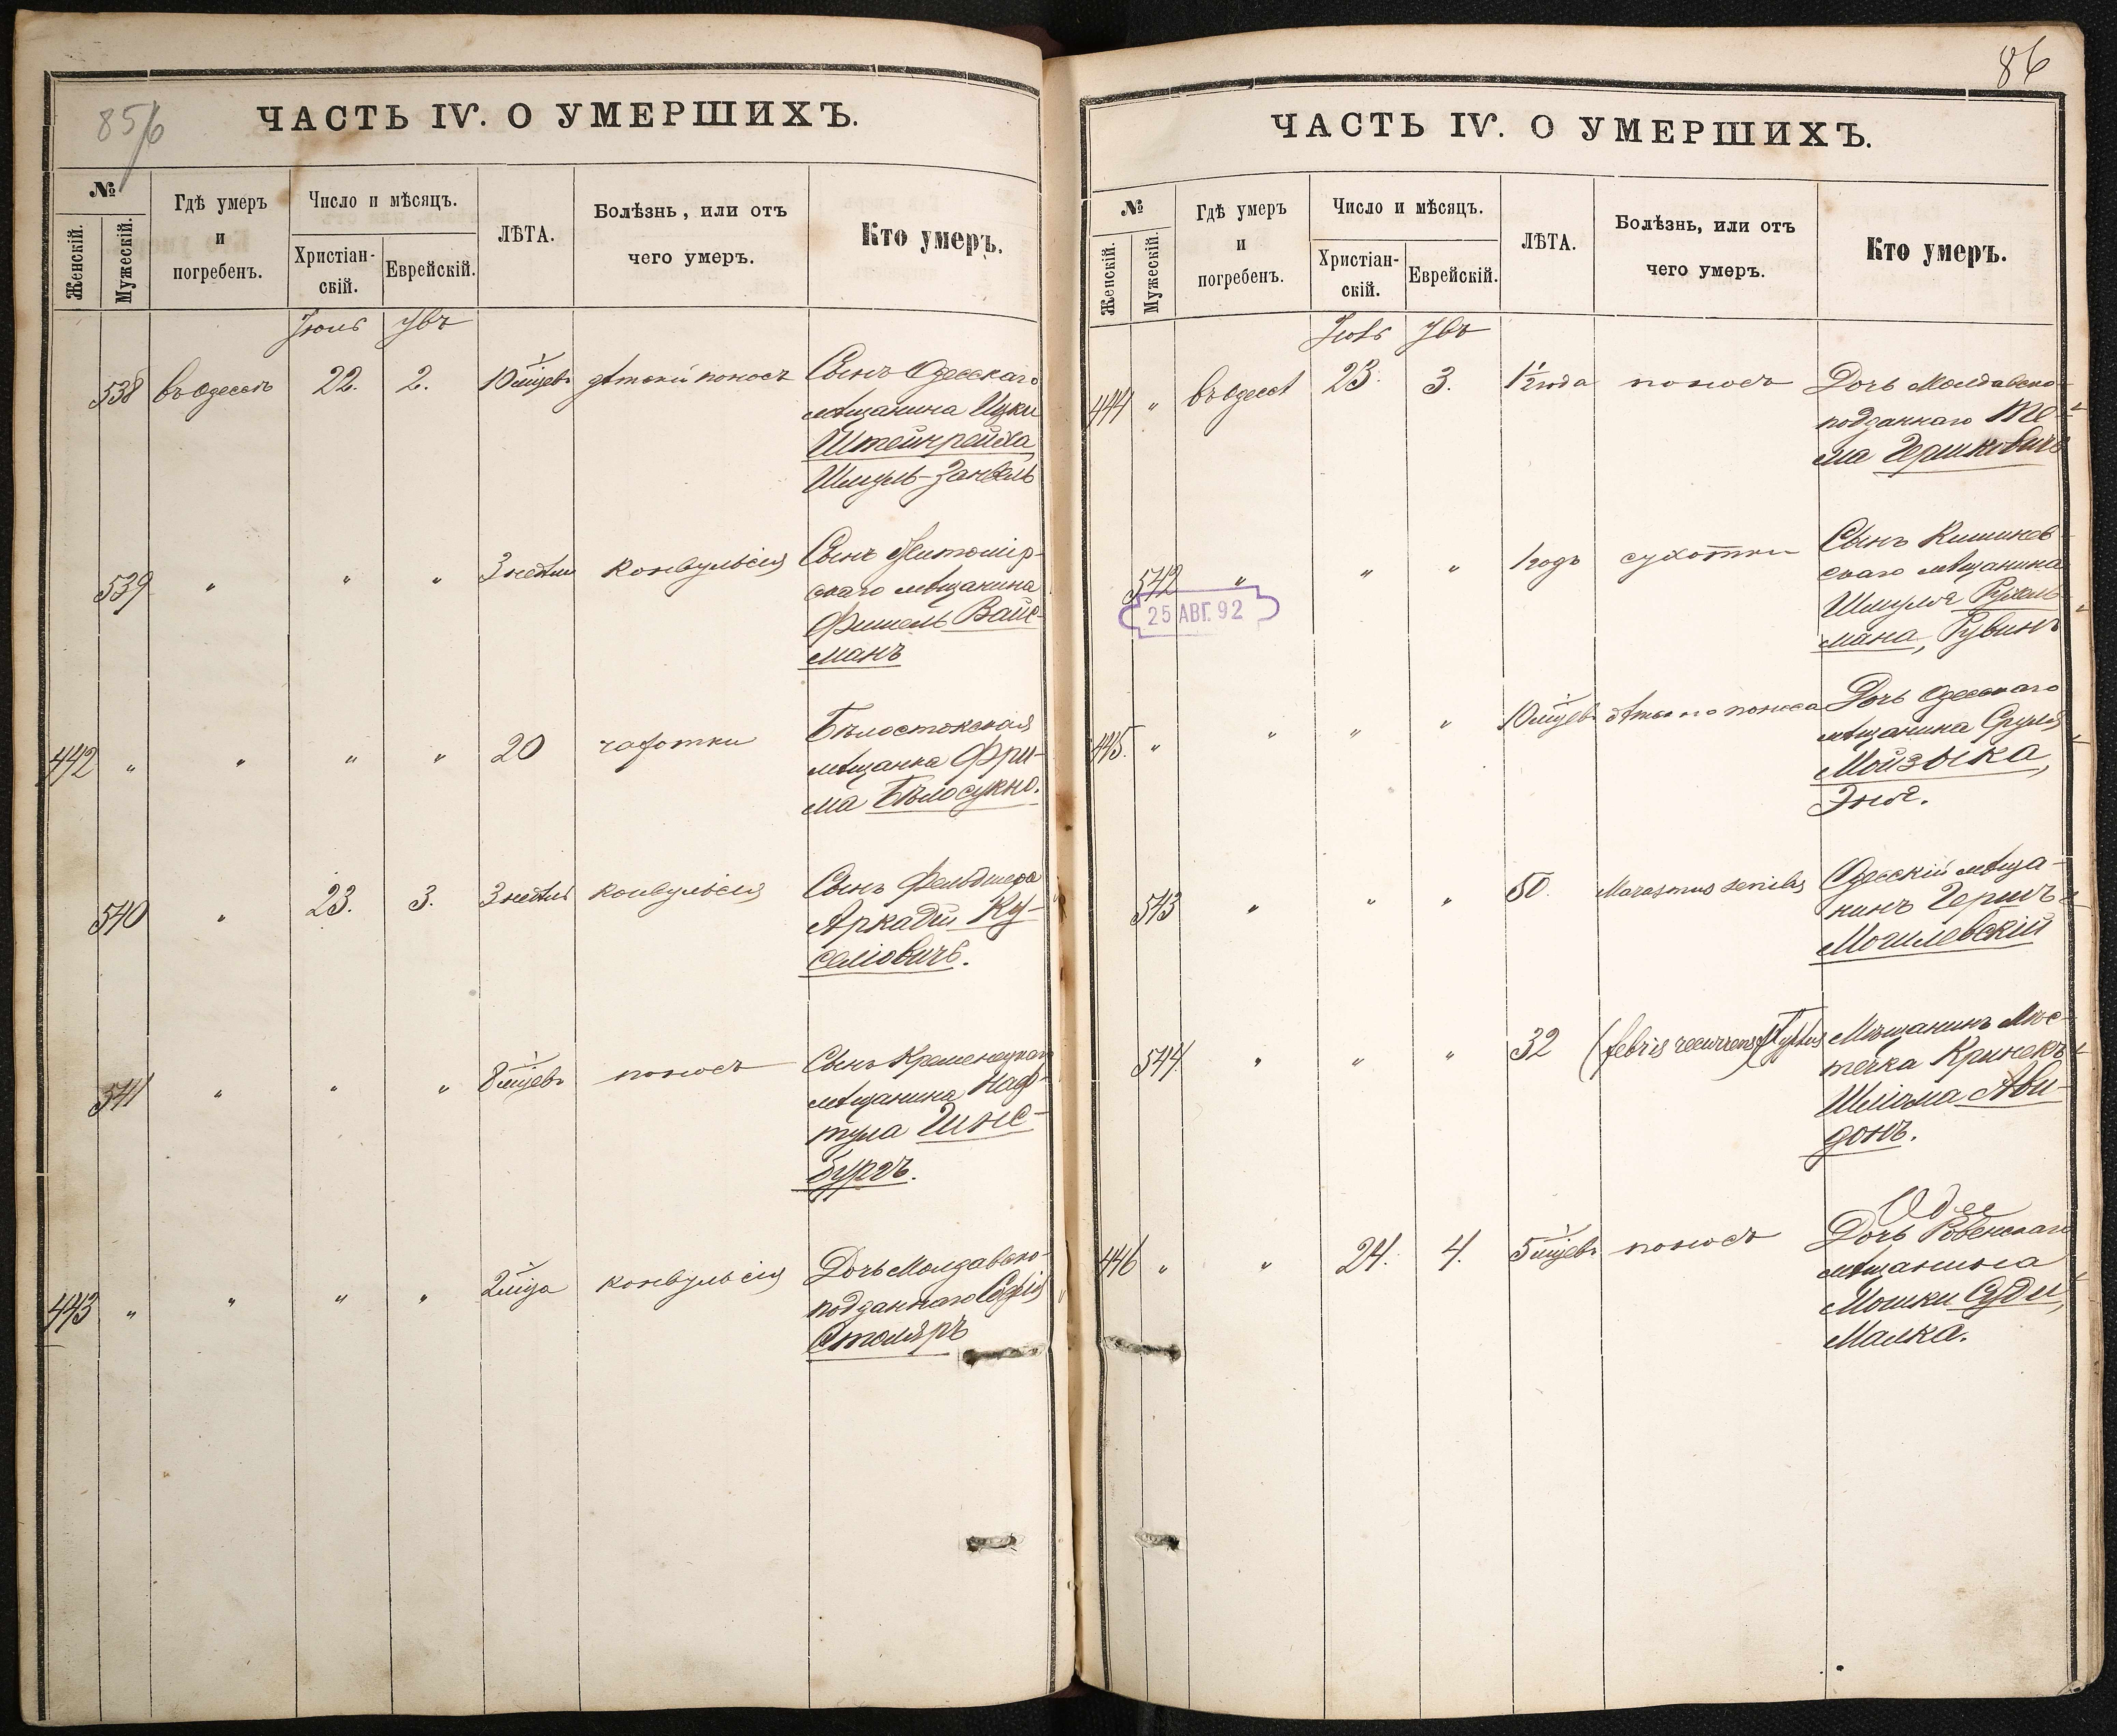 85/6
ЧАСТЬ IV. О УМЕРШИХЪ.
№
Женскій.
Мужескій.
Гдѣ умеръ
и
погребенъ.
Число и мѣсяцъ.
Христіан-
скій.
Еврейскій.
ЛѢТА.
Болѣзнь, или отъ
чего умеръ.
Кто умеръ.
Іюль
538 въ Одессѣ 22. 2. 10 мцевъ дѣтскій поносъ Сынъ Одесскаго
мѣщанина Ицки
Штейнрайха
Шмуль-Занвель
539 " " " 3 недѣли конвульсія Сынъ Житомір-
скаго мѣщанина
Фишель Вайс-
манъ
442 " " " " 20 чахотки Бѣлостокская
мѣщанка Фри-
ма Бѣлосукно.
540 " 23. 3. 3 недѣли конвульсія Сынъ Фельдшера
Аркадій Ку-
селіовичъ.
541 " " " 8 мцевъ поносъ Сынъ Кременецкаго
мѣщанина Наф-
тула Гинс-
бургъ.
443 " " " " 2 мца конвульсія Дочь Молдавско-
подданнаго Софія
Столяръ
86
ЧАСТЬ IV. О УМЕРШИХЪ.
№
Женскій.
Мужескій.
Гдѣ умеръ
и
погребенъ.
Число и мѣсяцъ.
Христіан-
скій.
Еврейскій.
ЛѢТА.
Болѣзнь, или отъ
чего умеръ.
Кто умеръ.
444 " въ Одессѣ 23. 3. 1½ года поносъ Дочь Молдавско-
подданнаго
ма Гершковичъ
542 " " " 1 годъ сухотки Сынъ Кишинев-
скаго мѣщанина
Шмуля
мана, Рувинъ
25 АВГ. 92
445. " " " " 10 мцевъ дѣтскаго поноса Дочь Одесскаго
мѣщанина Сруля
Мойзыка,
Эня.
543 " " " 50. Marasmus senilis Одесскій мѣща-
нинъ Гершъ
Могилевскій
544 " " " 32 (febris recurrens) Typhus Мѣщанинъ Мѣс-
течка Кринекъ
Шліома Ави-
донъ.
446 " " 24. 4. 5 мцевъ поносъ Дочь Ровенскаго
мѣщанина
Мошки Суди,
Малка.